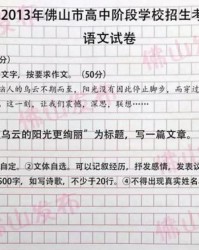 2013年佛山市高中阶段学校招生考
语文试卷
分)
文字，按要求作文。（50分）
人的乌云不期而至，阳光没有因此停止脚步，而穿过
。这一刻，让我们震撼、深思、联想……
乌云的阳光更绚丽”为标题，写一篇文章。
自定。②文体自选。可以记叙经历，抒发感情，发表议
500字，如写诗歌，不少于20行。④不得出现真实姓名、
佛山发布
佛山发布